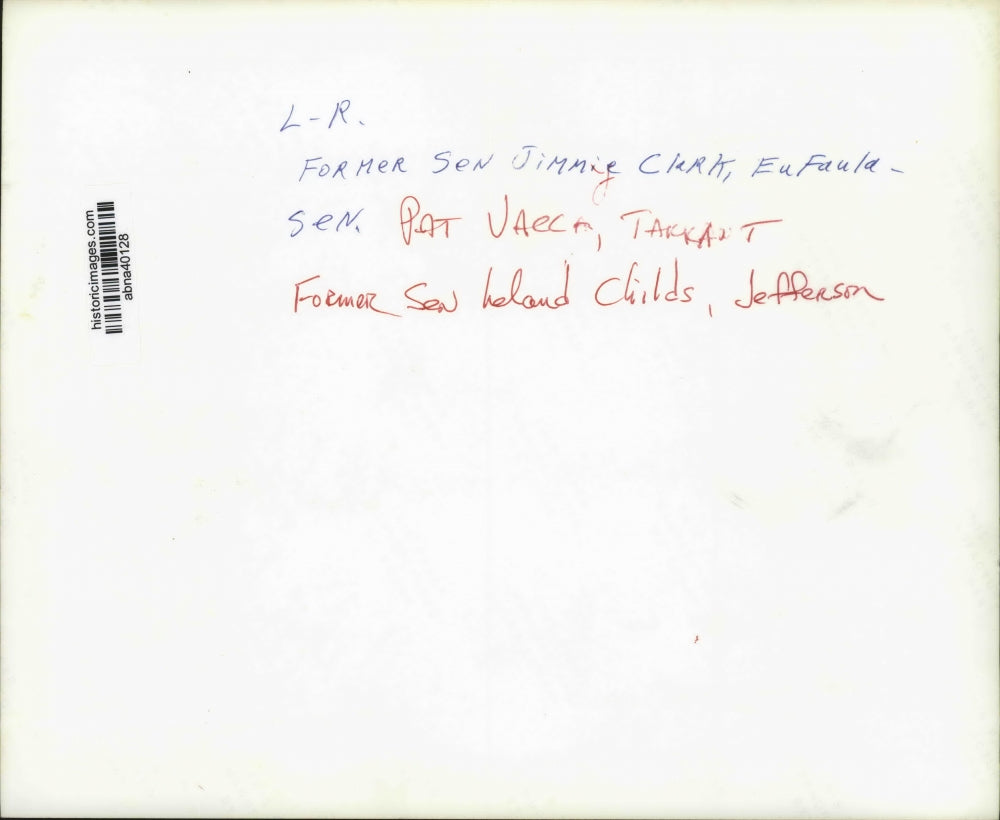 L-R.
FORMER SEN JIMMIE CLARK, EUFAULA -
SEN. PAT VACCA, TARRANT
FORMER SEN Leland Childs, Jefferson
historicimages.com
abna40128